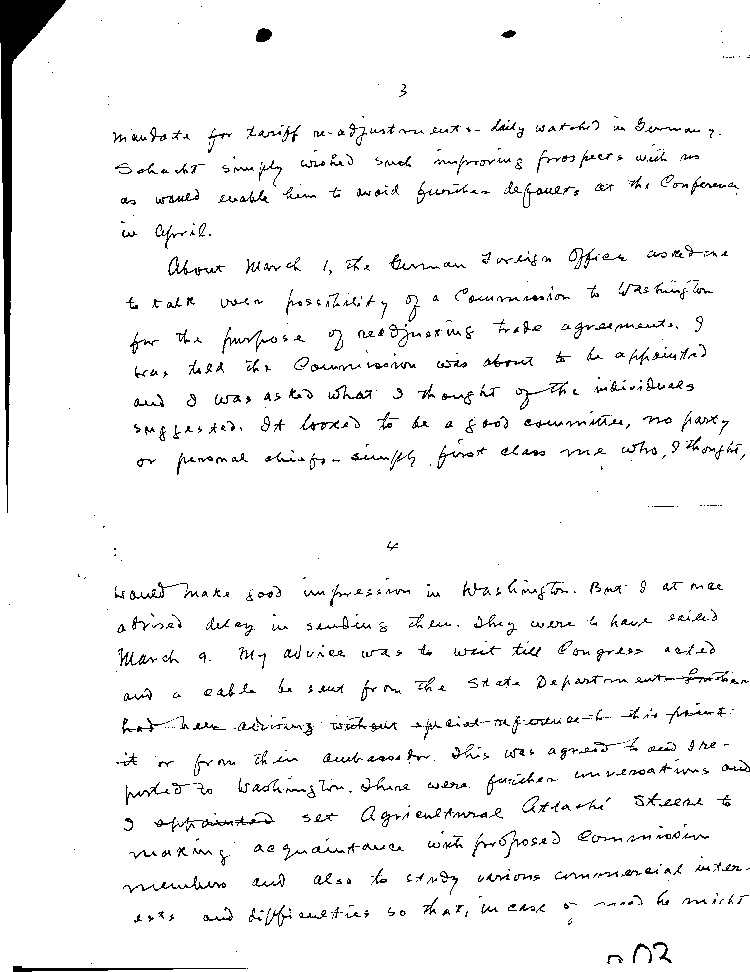 3
mandate for tariff re-adjustments - daily watched in Germany.
Schacht simply wished such improving prospects with us
as would enable him to avoid further defaults at the Conference
in April.
About March 1, the German Foreign Office asked me
to talk over possibility of a Commission to Washington
for the purpose of readjusting trade agreements. I
was told the Commission was about to be appointed
and I was asked what I thought of the individuals
suggested. It looked to be a good committee, no party
or personal chiefs - simply first class me who, I thought,
4
would make good impression in Washington. But I at once
advised delay in sending them. They were to have sailed
March 9. My advice was to wait till Congress acted
and a cable be sent from the State Department
had been advising without special reference to this point
it or from their ambassador. This was agreed to and I re-
ported to Washington. There were further conversations and
I appointed set Agricultural Attaché Steere to
making acquaintance with proposed Commission
members and also to study various commercial inter-
ests and difficulties so that, in case of need he might